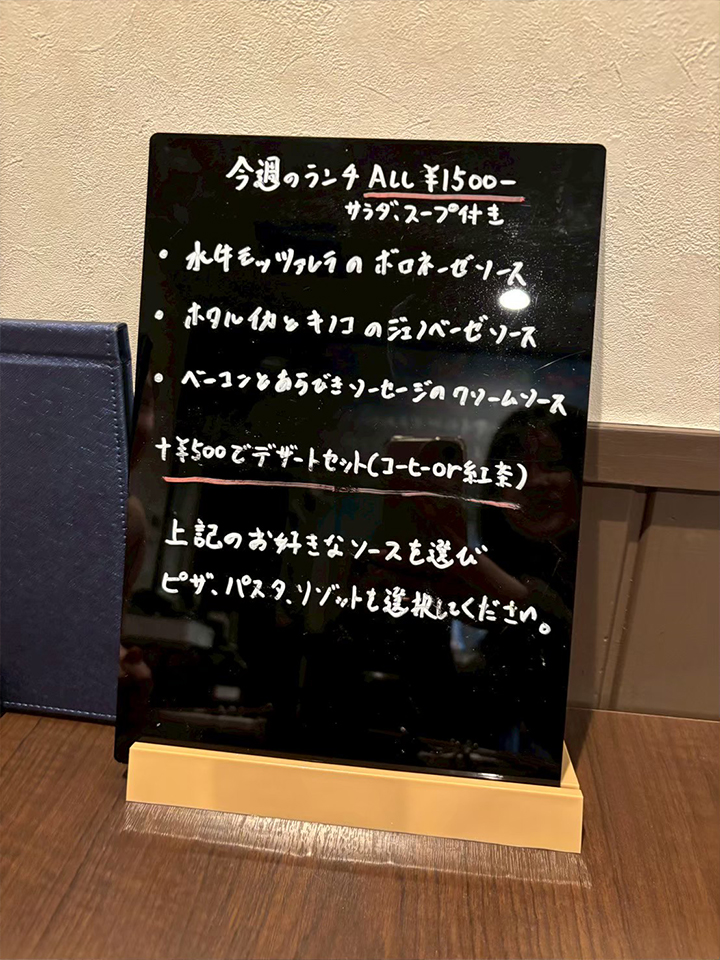 今週のランチ ALL ¥1500-
サラダ、スープ付き
・水牛モッツァレラのボロネーゼソース
・ホタルイカとキノコのジェノベーゼソース
・ベーコンとあらびきソーセージのクリームソース
+¥500でデザートセット(コーヒーor紅茶)
上記のお好きなソースを選び
ピザ、パスタ、リゾットも選択してください。